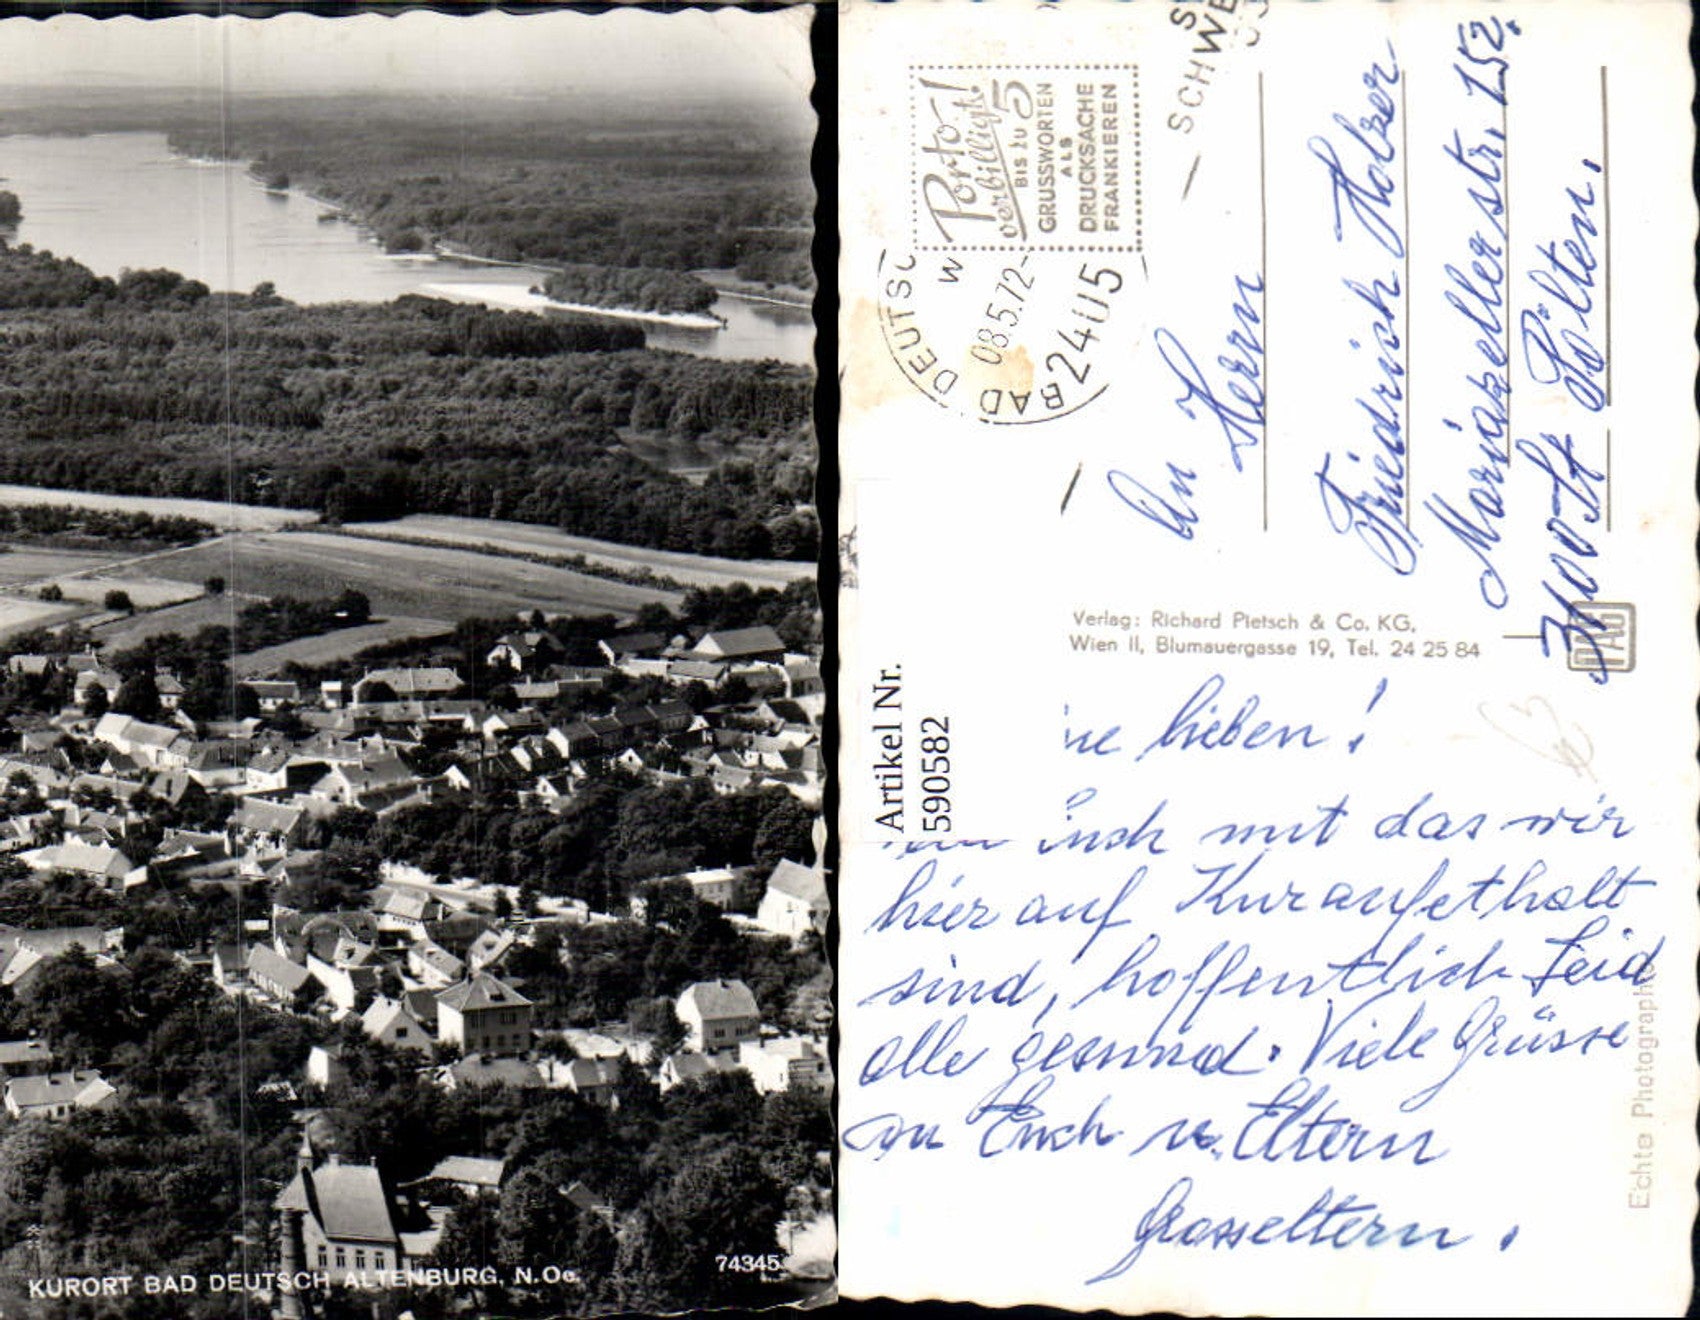 KURORT BAD DEUTSCH ALTENBURG, N.Oe.
74345
Porto!
verbilligt!
BIS zu 5
GRUSSWORTEN
ALS
DRUCKSACHE
FRANKIEREN
W
BAD DEUTSC
08.5.72-
2405
SCHWE
An
Herrn
Friedrich Holzer
Mariazellerstr. 152.
3100 St Pölten.
Verlag: Richard Pietsch & Co. KG,
Wien II, Blumauergasse 19, Tel. 24 25 84
PAG
Echte Photographie
Artikel Nr.
590582
ne lieben!
Euch mit das wir
hier auf Kuraufethalt
sind, hoffentlich Seid
alle gesund. Viele Grüsse
an Euch u. Eltern
Grosseltern.